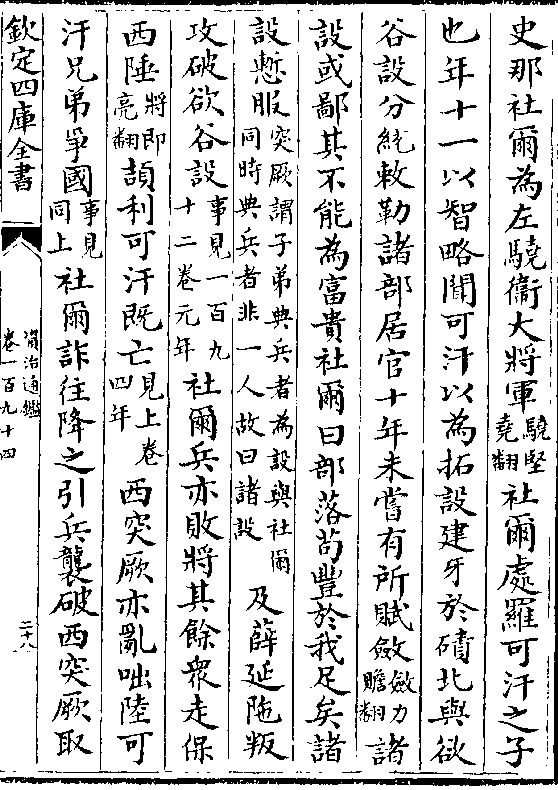 史那社爾為左驍衞大將軍驍堅堯翻社爾處羅可汗之子
也年十一以智略聞可汗以為拓設建牙於磧北與欲
谷設分統敕勒諸部居官十年未嘗有所賦斂斂力贍翻諸
設或鄙其不能為富貴社爾曰部落苟豐於我足矣諸
設慙服突厥謂子弟典兵者為設與社爾同時典兵者非一人故曰諸設及薛延陁叛
攻破欲谷設事見一百九十二卷元年社爾兵亦敗將其餘衆走保
西陲將即亮翻頡利可汗既亡見上卷四年西突厥亦亂咄陸可
汗兄弟爭國事見同上社爾詐往降之引兵襲破西突厥取
欽定四庫全書
資治通鑑
卷一百九十四
二十八